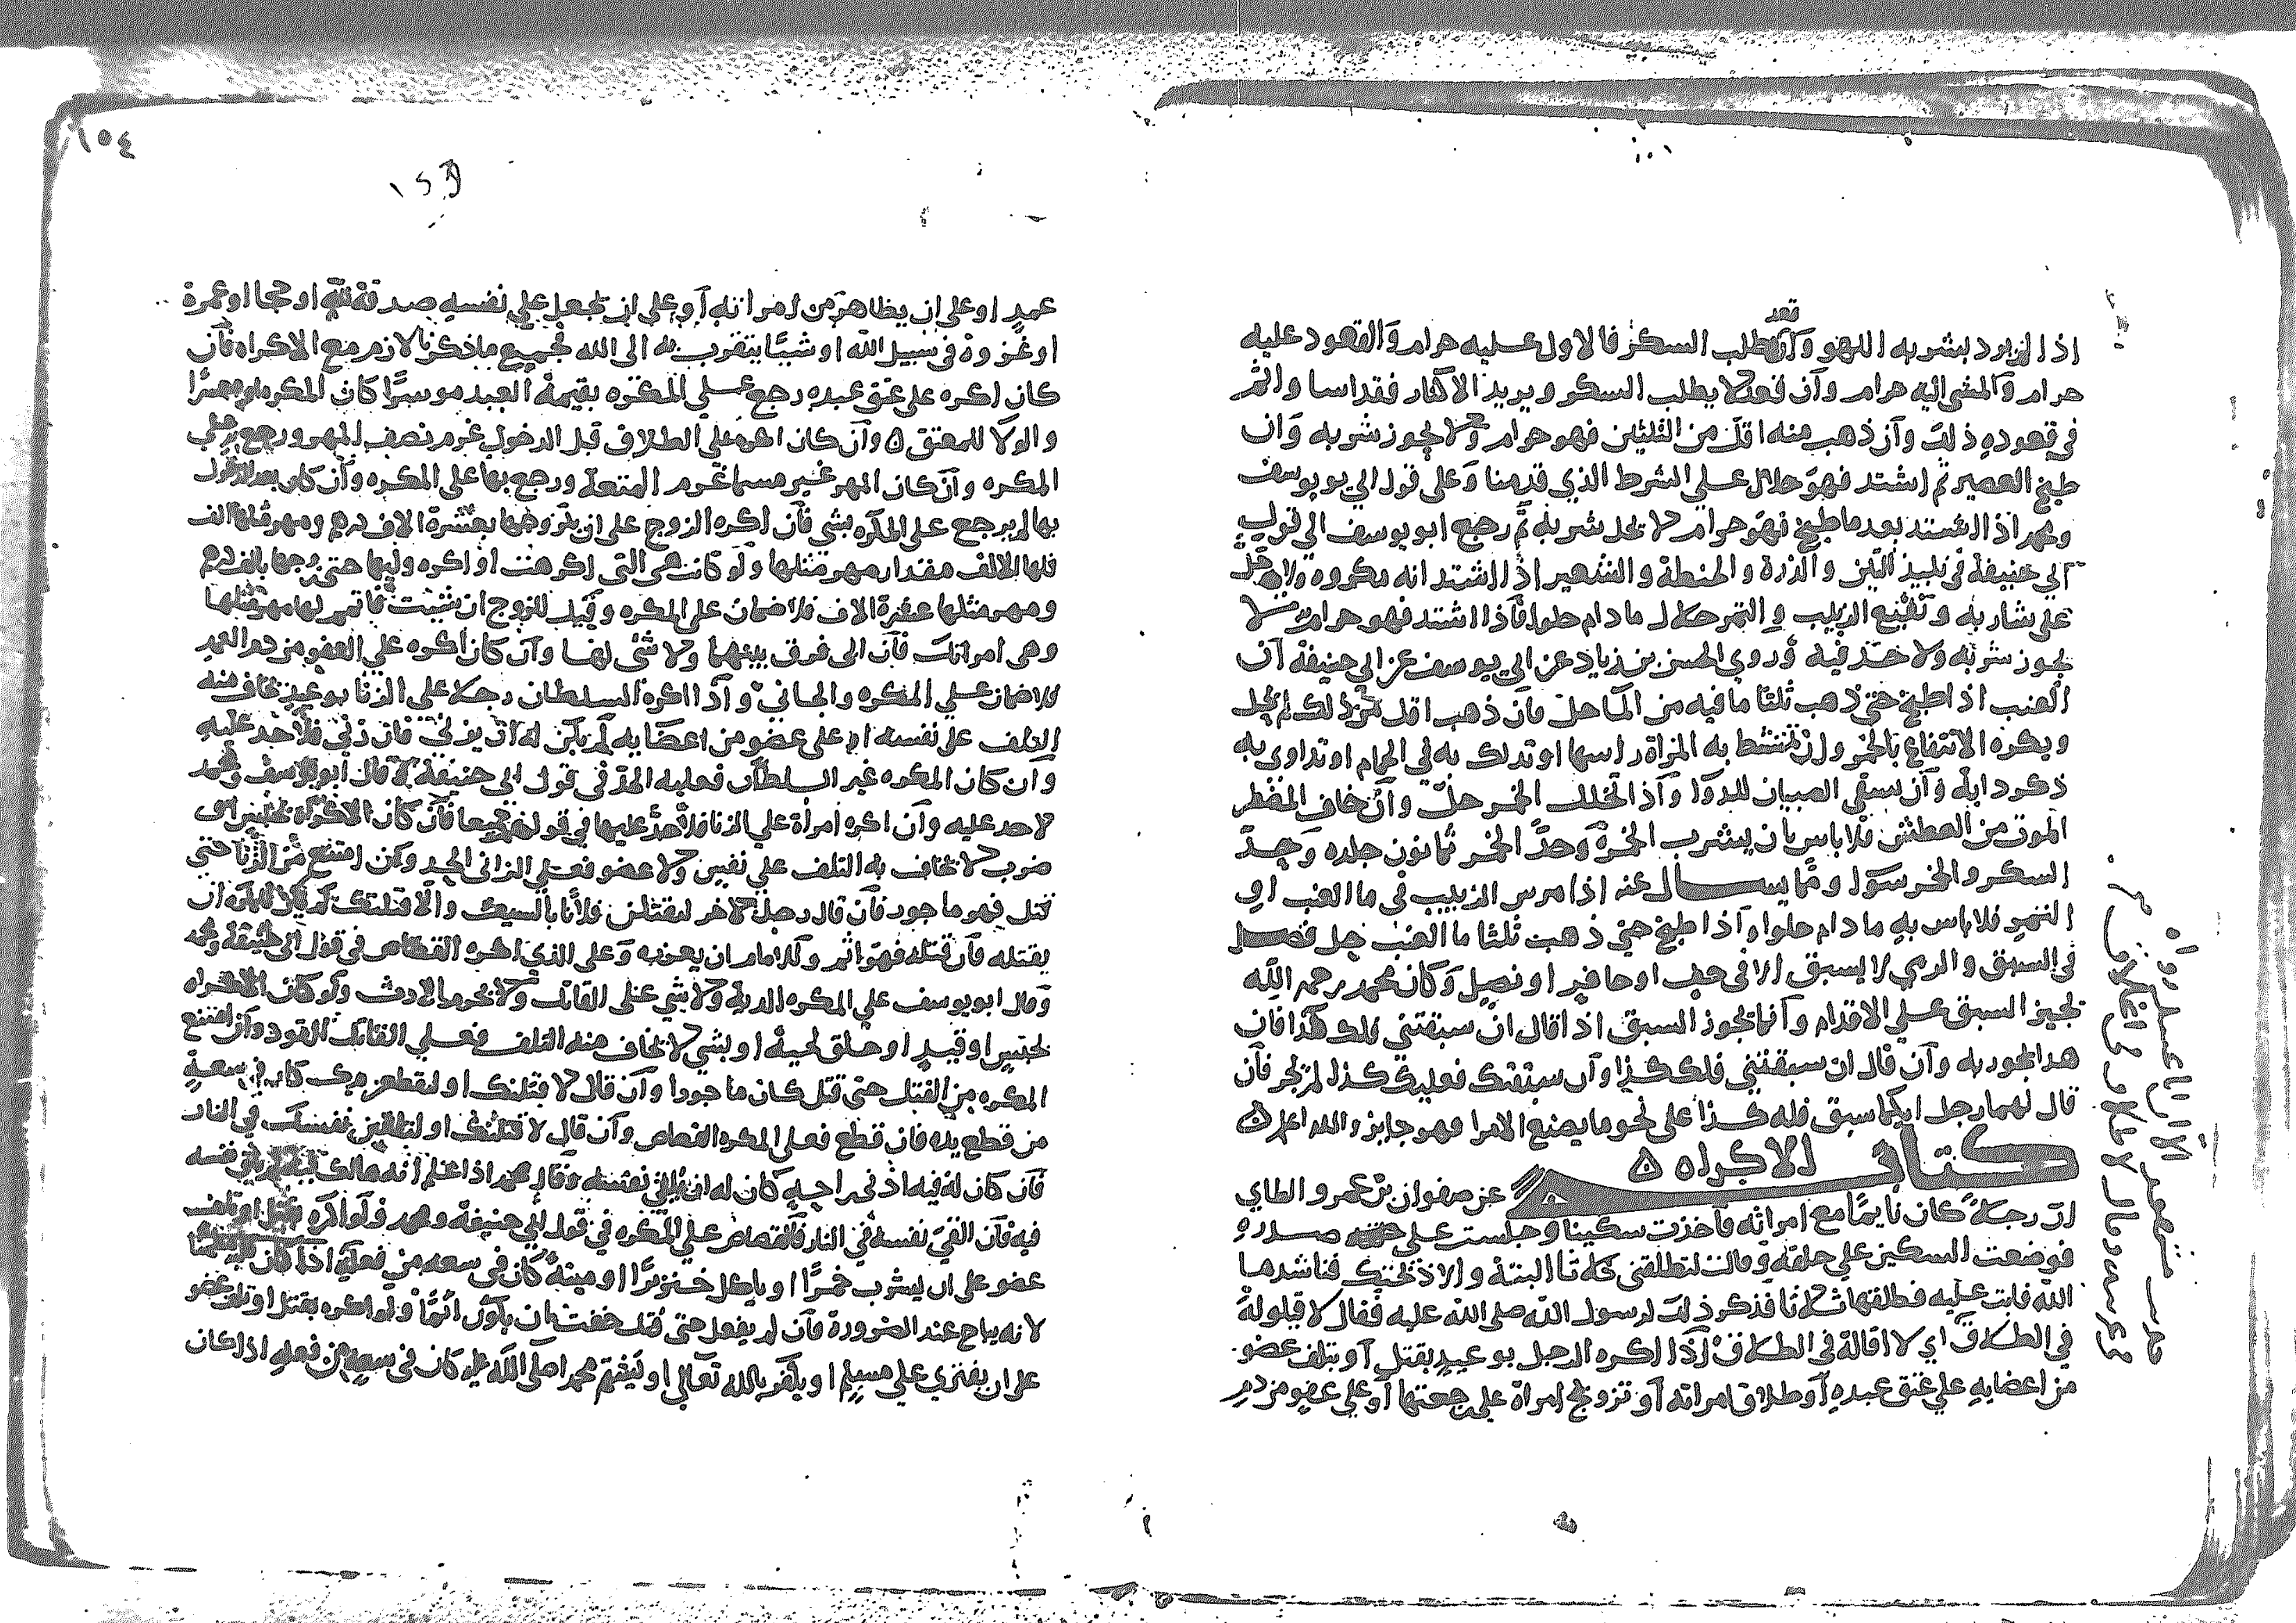 قعد
اذا لم يرد بشربه اللهو وان طلب السكر فالاول عليه حرام والقعود عليه
حرام والمشي اليه حرام وان قعد لا يطلب السكر ويريد الاكثار فقد اسا واثم
في قعوده ذلك وان ذهب منه اقل من الثلثين فهو حرام ولا يجوز شربه وان
طبخ العصير ثم اشتد فهو حلال على الشرط الذي قدمنا وعلى قول ابي يوسف
ومحمد اذا اشتد بعد ما طبخ فهو حرام لا يحل شربه ثم رجع ابو يوسف الى قول
ابي حنيفة في نبيذ التين والذرة والحنطة والشعير اذا اشتد انه مكروه ولا حد
على شاربه ونقيع الزبيب والتمر حلال ما دام حلوا فاذا اشتد فهو حرام لا
يجوز شربه ولا حد فيه وروي الحسن بن زياد عن ابي يوسف عن ابي حنيفة ان
العنب اذا طبخ حتى ذهب ثلثا ما فيه من الماحل فان ذهب اقل من ذلك لم يحل
ويكره الانتفاع بالخمر وان تمتشط به المراة راسها او تدلك به في الحمام او تداوي به
ذكر دابة وان يسقي الصبيان للدوا واذا تخلل الخمر حل وان خاف المضطر
الموت من العطش فلا باس بان يشرب الخمر وحد الخمر ثمانون جلده وحد
السكر والخمر سوا ومما يسال عنه اذا مرس الزبيب في ما العنب او
التمر فلا باس به ما دام حلوا واذا طبخ حتى ذهب ثلثا ما العنب حل فصل
في السبق والرمي لا يسبق الا في خف او حافر او نصل وكان محمد رحمه الله
يجيز السبق على الاقدام وانما يجوز السبق اذا قال ان سبقتني فلك هذا فان
هذا يجوز به وان قال ان سبقتني فلك كذا وان سبقتك فعليك كذا لم يجز فان
قال لهما رجل ايكما سبق فله كذا على نحو ما يصنع الامرا فهو جايز والله اعلم
كتاب الاكراه
عن صفوان بن عمرو الطاي
ان رجلا كان نايما مع امراته فاخذت سكينا وجلست على صدره
فوضعت السكين على حلقه وقالت لتطلقني ثلاثا البتة والا ذبحتك فناشدها
الله فابت عليه فطلقها ثلاثا فذكر ذلك لرسول الله صلى الله عليه فقال لا قيلولة
في الطلاق اي لا اقالة في الطلاق اذا اكره الرجل بوعيد بقتل او بتلف عضو
من اعضايه على عتق عبده او طلاق امراته او تزويج امراة على رجعتها او على عفو من دم
١٥٤
عمد او على ان يظاهر من امراته او على ان يجعل على نفسه صدقة لله او حجا او عمرة
او غزوة في سبيل الله او شيئا يتقرب به الى الله فجميع ما ذكرنا لازم مع الاكراه فان
كان اكره على عتق عبده رجع على المكره بقيمة العبد موسرا كان المكره او معسرا
والولا للمعتق وان كان اكره على الطلاق قبل الدخول غرم نصف المهر ورجع به على
المكره وان كان المهر غير مسما غرم المتعة ورجع بها على المكره وان كان بعد الدخول
بها لم يرجع على المكره بشي فان اكره الزوج على ان يتزوجها بعشرة الاف درهم ومهر مثلها الف
فلها الالف مقدار مهر مثلها ولو كانت هي التي اكرهت او اكره وليها حتى زوجها بالف درهم
ومهر مثلها عشرة الاف فلا ضمان على المكره وقيل للزوج ان شيت فاتمم لها مهر مثلها
وهي امراتك فان ابى فرق بينهما ولا شي لها وان كان اكره على العفو من دم العمد
فلا ضمان على المكره والجاني واذا اكره السلطان رجلا على الزنا بوعيد يخاف منه
التلف على نفسه او على عضو من اعضايه لم يكن له ان يزني فان زنى فلا حد عليه
وان كان المكره غير السلطان فعليه الحد في قول ابي حنيفة وقال ابو يوسف ومحمد
لا حد عليه وان اكره امراة على الزنا فلا حد عليها في قولهم جميعا فان كان الاكراه بحبس او
ضرب لا يخاف به التلف على نفس ولا عضو فعلى الزاني الحد وان امتنع من الزنا حتى
قتل فهو ماجور فان قال رجل لاخر لتقتلن فلانا بالسيف والا قتلتك لم ان
يقتله فان قتله فهو اثم وللامام ان يعزره وعلى الذي اكره القصاص في قول ابي حنيفة ومحمد
وقال ابو يوسف على المكره الدية ولا شي على القاتل ولا يحرم الارث ولو كان الاكراه
بحبس او قيد او حلق لحية او بشي لا يخاف منه التلف فعلى القاتل القود وان امتنع
المكره من القتل حتى قتل كان ماجورا وان قال لاقتلنك او لتقطعن يدك كان في سعة
من قطع يده فان قطع فعلى المكره القصاص وان قال لاقتلنك او لتلقين نفسك في النار
فان كان له فيه ادنى راحة كان له ان يلقي نفسه وقال محمد اذا علم انه هالك يلقي نفسه
فيه فان القى نفسه في النار فالقصاص على المكره في قول ابي حنيفة ومحمد ولو اكره بقتل او تلف
عضو على ان يشرب خمرا او ياكل خنزيرا او ميتة كان في سعه من فعله اذا كان
لانه يباح عند الضرورة فان لم يفعل حتى قتل خفت ان يكون اثما ولو اكره بقتل او تلف عضو
على ان يفتري على مسلم او يكفر بالله تعالى او يشتم محمد صلى الله عليه كان في سعة من فعله اذا كان